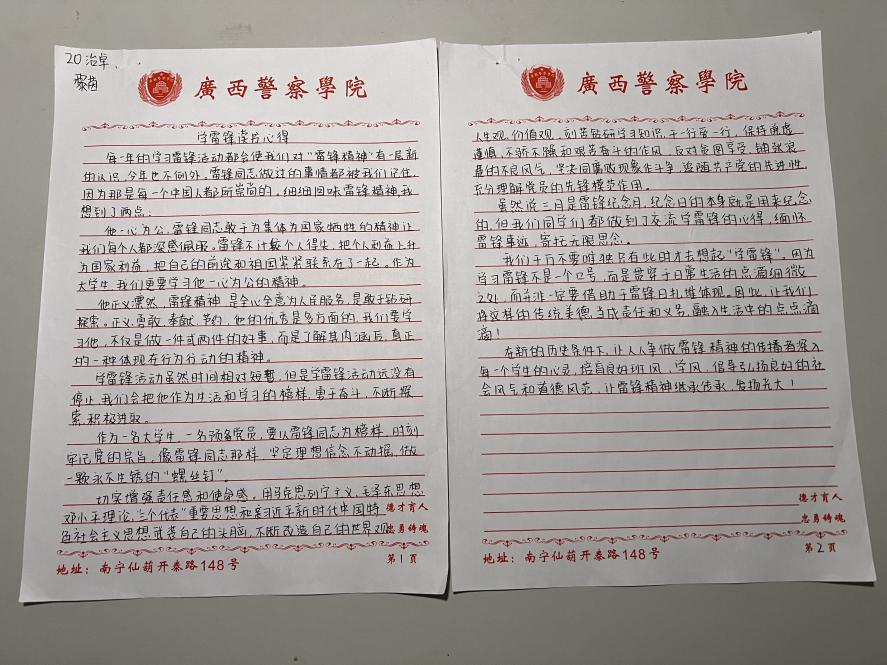 20治卓、
黎茵
廣西警察學院
学雷锋读后心得
每一年的学习雷锋活动都会使我们对“雷锋精神”有一层新
的认识，今年也不例外。雷锋同志做过的事情都被我们记住，
因为那是每一个中国人都所崇尚的。细细回味雷锋精神，我
想到了两点：
他一心为公，雷锋同志敢于为集体为国家牺牲的精神让
我们每个人都深感佩服。雷锋不计较个人得失，把个人利益上升
为国家利益，把自己的前途和祖国紧紧联系在了一起。作为
大学生，我们更要学习他一心为公的精神。
他正义凛然，雷锋精神，是全心全意为人民服务，是敢于钻研
探索。正义、勇敢、奉献、节约，他的优秀是多方面的，我们要学
习他，不仅是做一件或两件的好事，而是了解其内涵后，真正
的一种体现在行为行动的精神。
学雷锋活动虽然时间相对短暂，但是学雷锋活动远没有
停止，我们会把他作为生活和学习的榜样，勇于奋斗，不断探
索，积极进取。
作为一名大学生，一名预备党员，要以雷锋同志为榜样，时刻
牢记党的宗旨，像雷锋同志那样，坚定理想信念不动摇，做
一颗永不生锈的“螺丝钉”。
切实增强责任感和使命感。用马克思列宁主义、毛泽东思想
邓小平理论、“三个代表”重要思想和习近平新时代中国特
德才育人
色社会主义思想武装自己的头脑，不断改造自己的世界观
忠勇铸魂
地址：南宁仙葫开泰路148号
第1页
廣西警察學院
人生观、价值观，刻苦钻研学习知识，干一行爱一行，保持谦虚
谨慎、不骄不躁和艰苦奋斗的作风，反对贪图享受、铺张浪
费的不良风气，坚决同腐败现象作斗争，追随共产党的先进性，
充分理解党员的先锋模范作用。
虽然说三月是雷锋纪念月，纪念日的本身就是用来纪念
的，但我们同学们都做到了交流学雷锋的心得，缅怀
雷锋事迹，寄托无限思念。
我们千万不要唯独只有此时才去想起“学雷锋”。因为
学习雷锋不是一个口号，而是贯穿于日常生活的点滴细微
之处，而并非一定要借助于雷锋日扎堆体现。因此，让我们
将这样的传统美德，当成责任和义务，融入生活中的点点滴
滴！
在新的历史条件下，让人人争做雷锋精神的传播者，深入
每个学生的心灵，培育良好班风、学风，倡导弘扬良好的社
会风气和道德风范，让雷锋精神继承传承，发扬光大！
德才育人
忠勇铸魂
地址：南宁仙葫开泰路148号
第2页